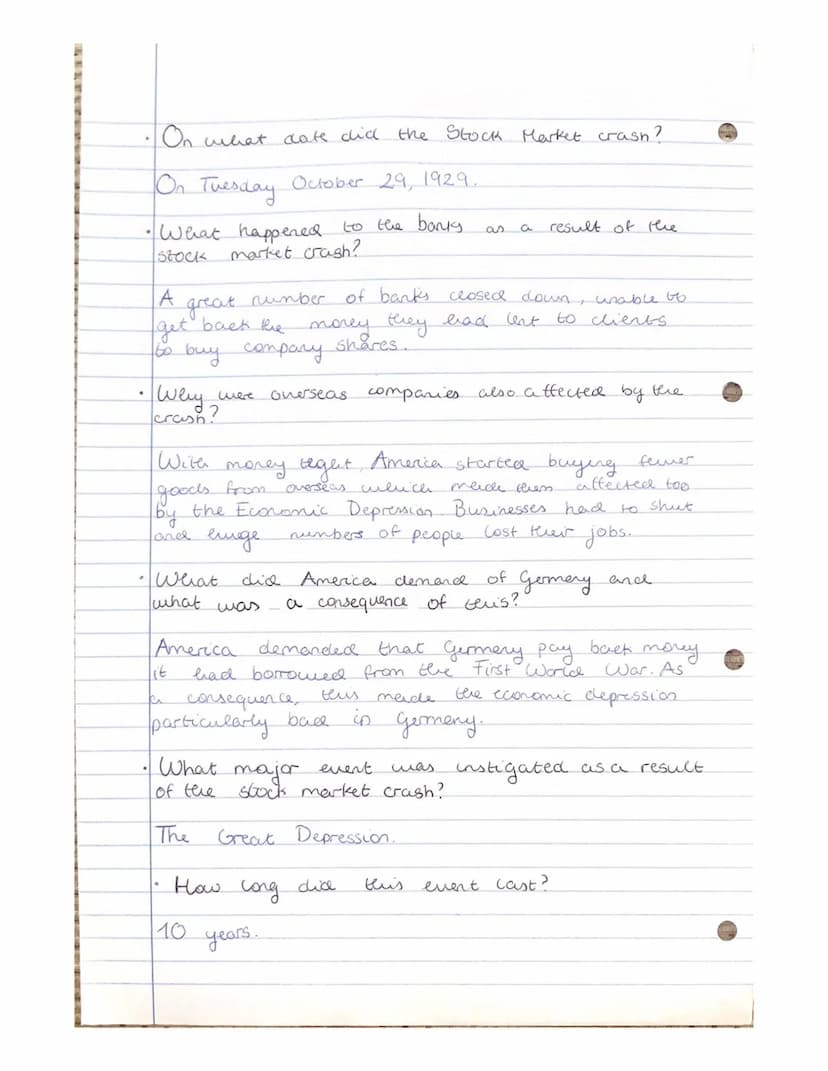 · On what date did the Stock Market crash?
On Tuesday October 29, 1929.
· What happened to the banks as a result of the
stock market crash?
A great number of banks closed down, unable to
get back the money they had lent to clients
to buy company shares.
· Why were overseas companies also affected by the
crash?
With money tight, America started buying fewer
goods from overseas which made them affected too
by the Economic Depression. Businesses had to shut
and huge numbers of people lost their jobs.
· What did America demand of Germany and
what was a consequence of this?
America demanded that Germany pay back money
it had borrowed from the First World War. As
a consequence, this made the economic depression
particularly bad in Germany.
· What major event was instigated as a result
of the stock market crash?
The Great Depression.
· How long did this event last?
10 years.